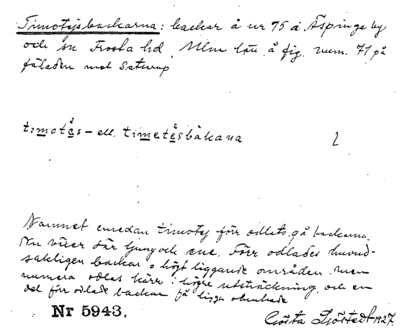 Timotejsbackarna: backar å nr 75 å Äspinge by
och sn Frosta hd, Mlm län, å fig. num. 71 på
fäladen mot Saturup
timotẹs- ell. timetẹsbakana 2
Namnet emedan timotej förr odlats på backarna.
Nu växer där ljung och ene. Förr odlades huvud-
sakligen backar o högt liggande områden, men
numera odlas kärr i högre utsträckning och en
del förr odlade backar få ligga obrukade
Nr 5943. Gösta Sjöstedt 1927.